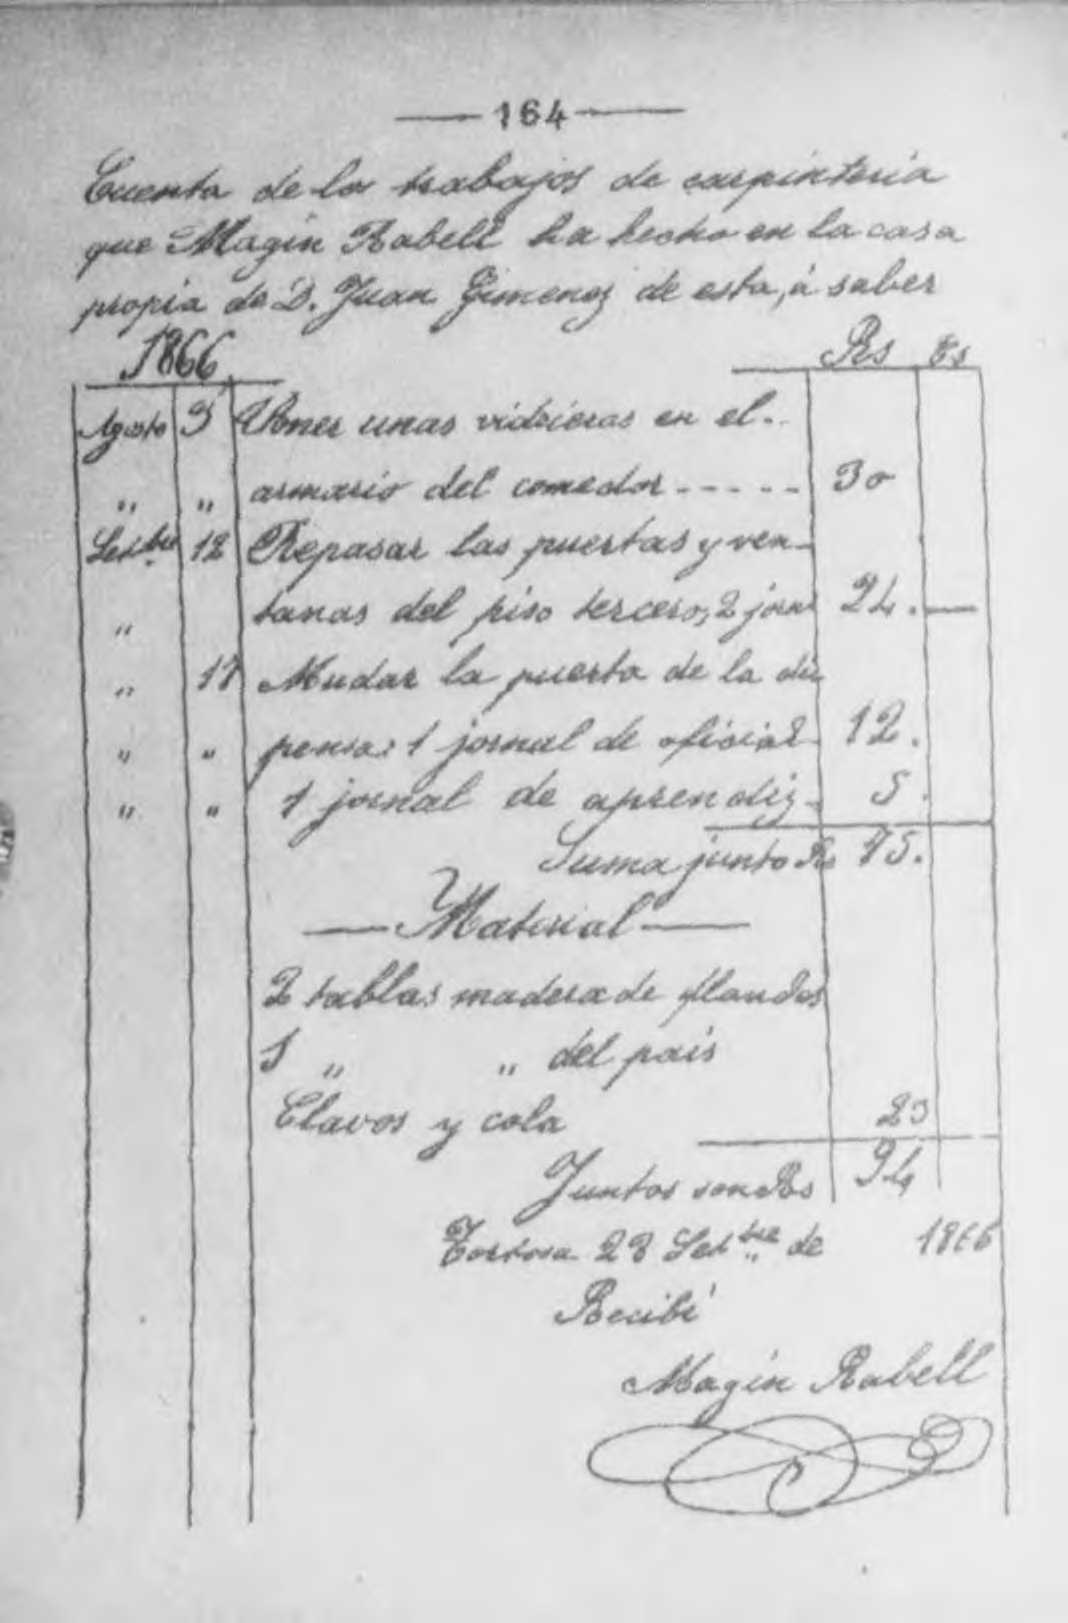 164
Cuenta de los trabajos de carpinteria
que Magin Rabell ha hecho en la casa
propia de D. Juan Gimenez de esta, á saber
1866 Rs Cs
Agosto 5 Poner unas vidrieras en el..
" " armario del comedor ----- 30
Setbre 12 Repasar las puertas y ven-
" tanas del piso tercero, 2 jorns 24. —
" 17 Mudar la puerta de la dis
" " pensa: 1 jornal de oficial 12.
" " 1 jornal de aprendiz - 5.
Suma junto Rs 75.
Material
2 tablas madera de flandes
1 " " del pais
Clavos y cola 23
Juntos son Rs 94
Tortosa 28 Setbre de 1866
Recibí
Magin Rabell